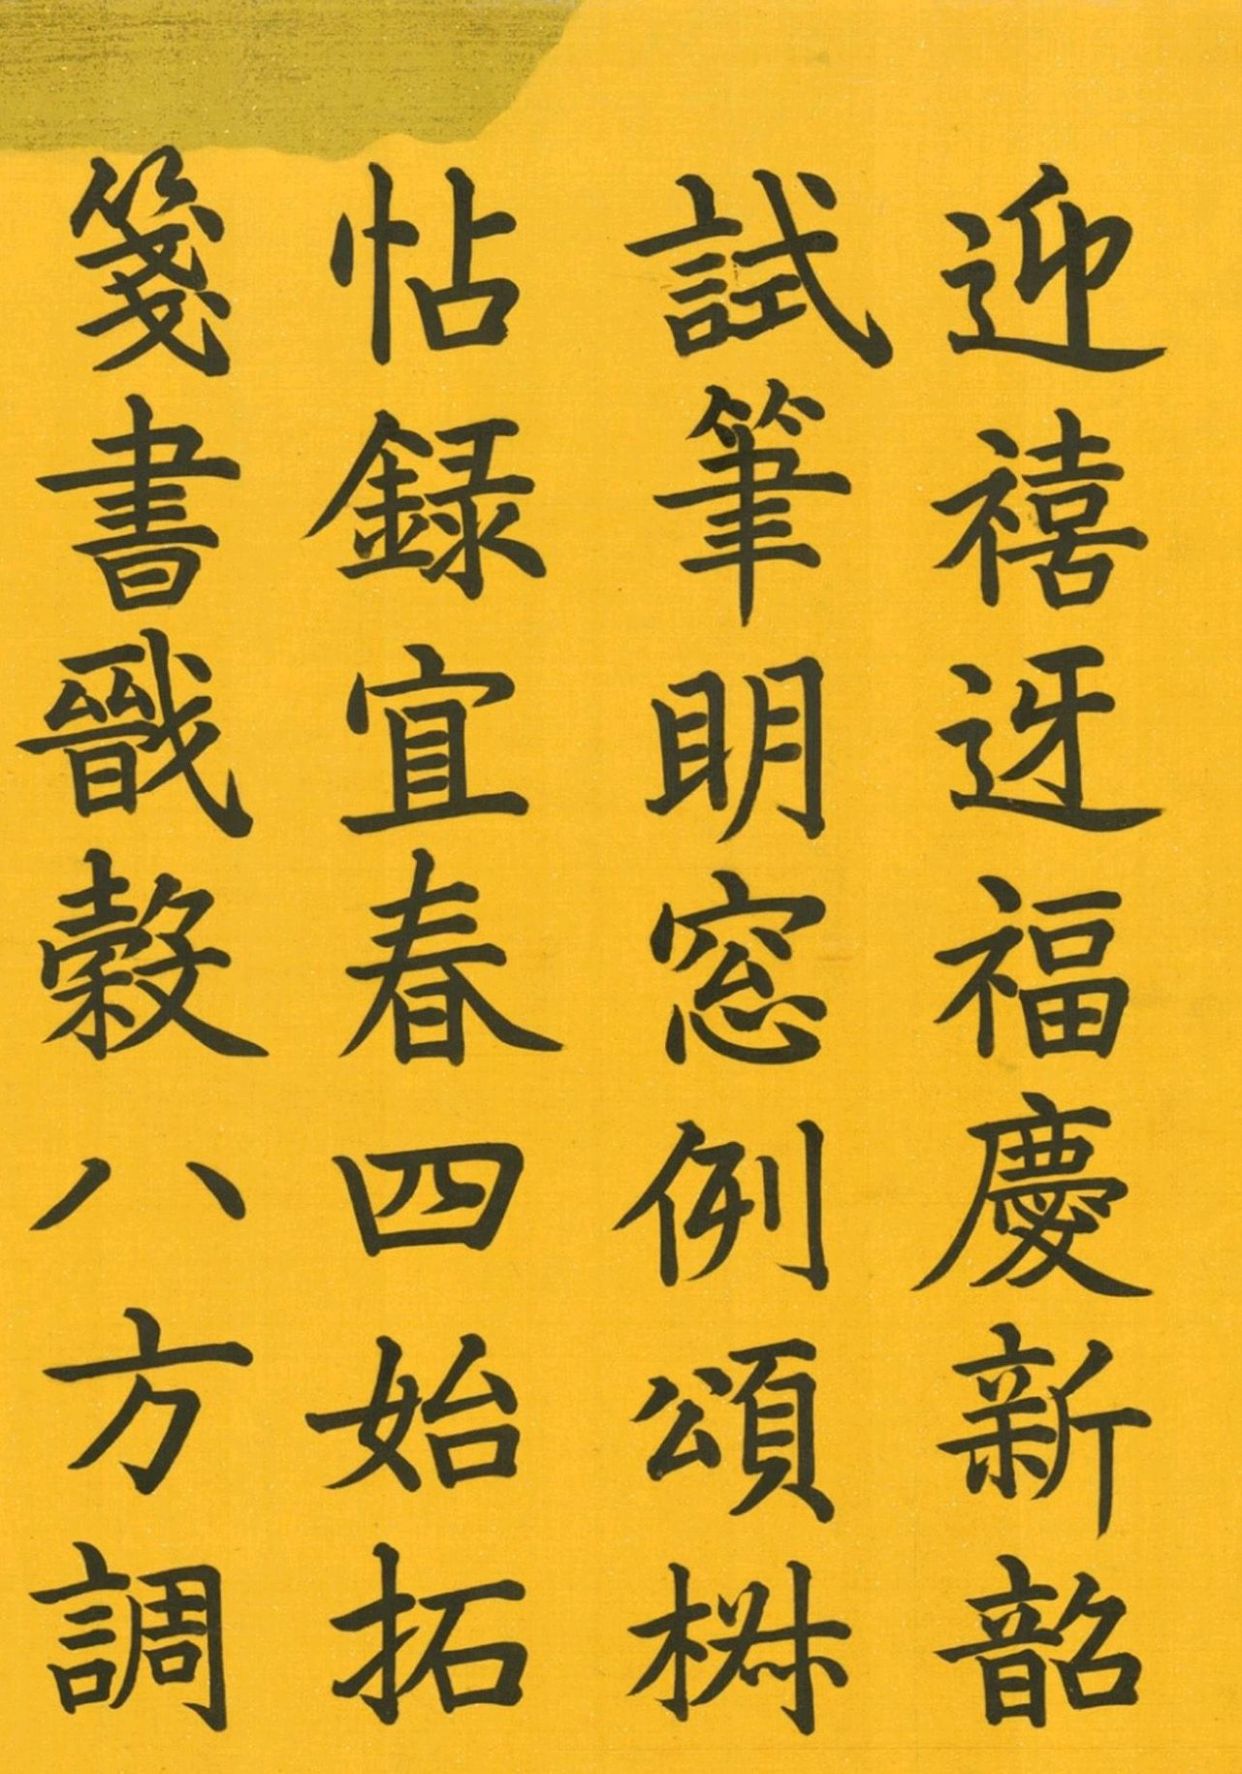 迎禧迓福慶新韶
試筆眀窓例頌椒
帖録宜春四始拓
箋書戩穀八方調